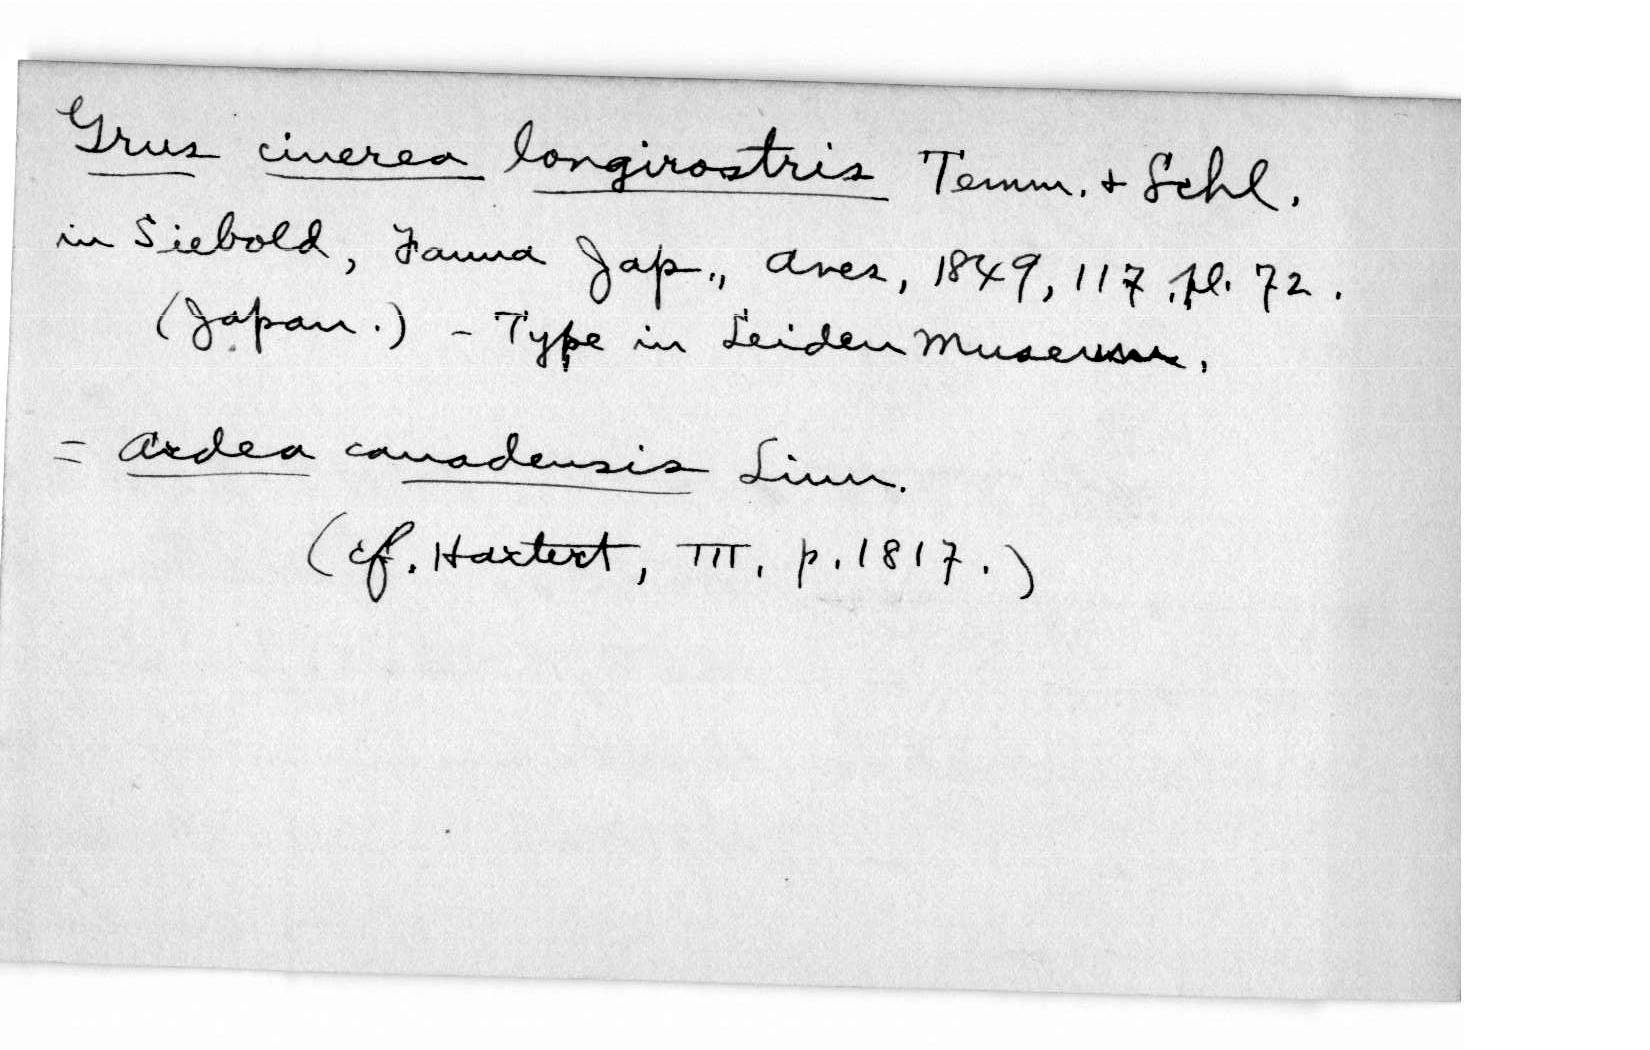 Grus cinerea longirostris Temm. + Schl.
in Siebold, Fauna Jap., Aves, 1849, 117, pl. 72.
(Japan.) - Type in Leiden Museum.
= Ardea canadensis Linn.
(cf. Hartert, III, p. 1817.)